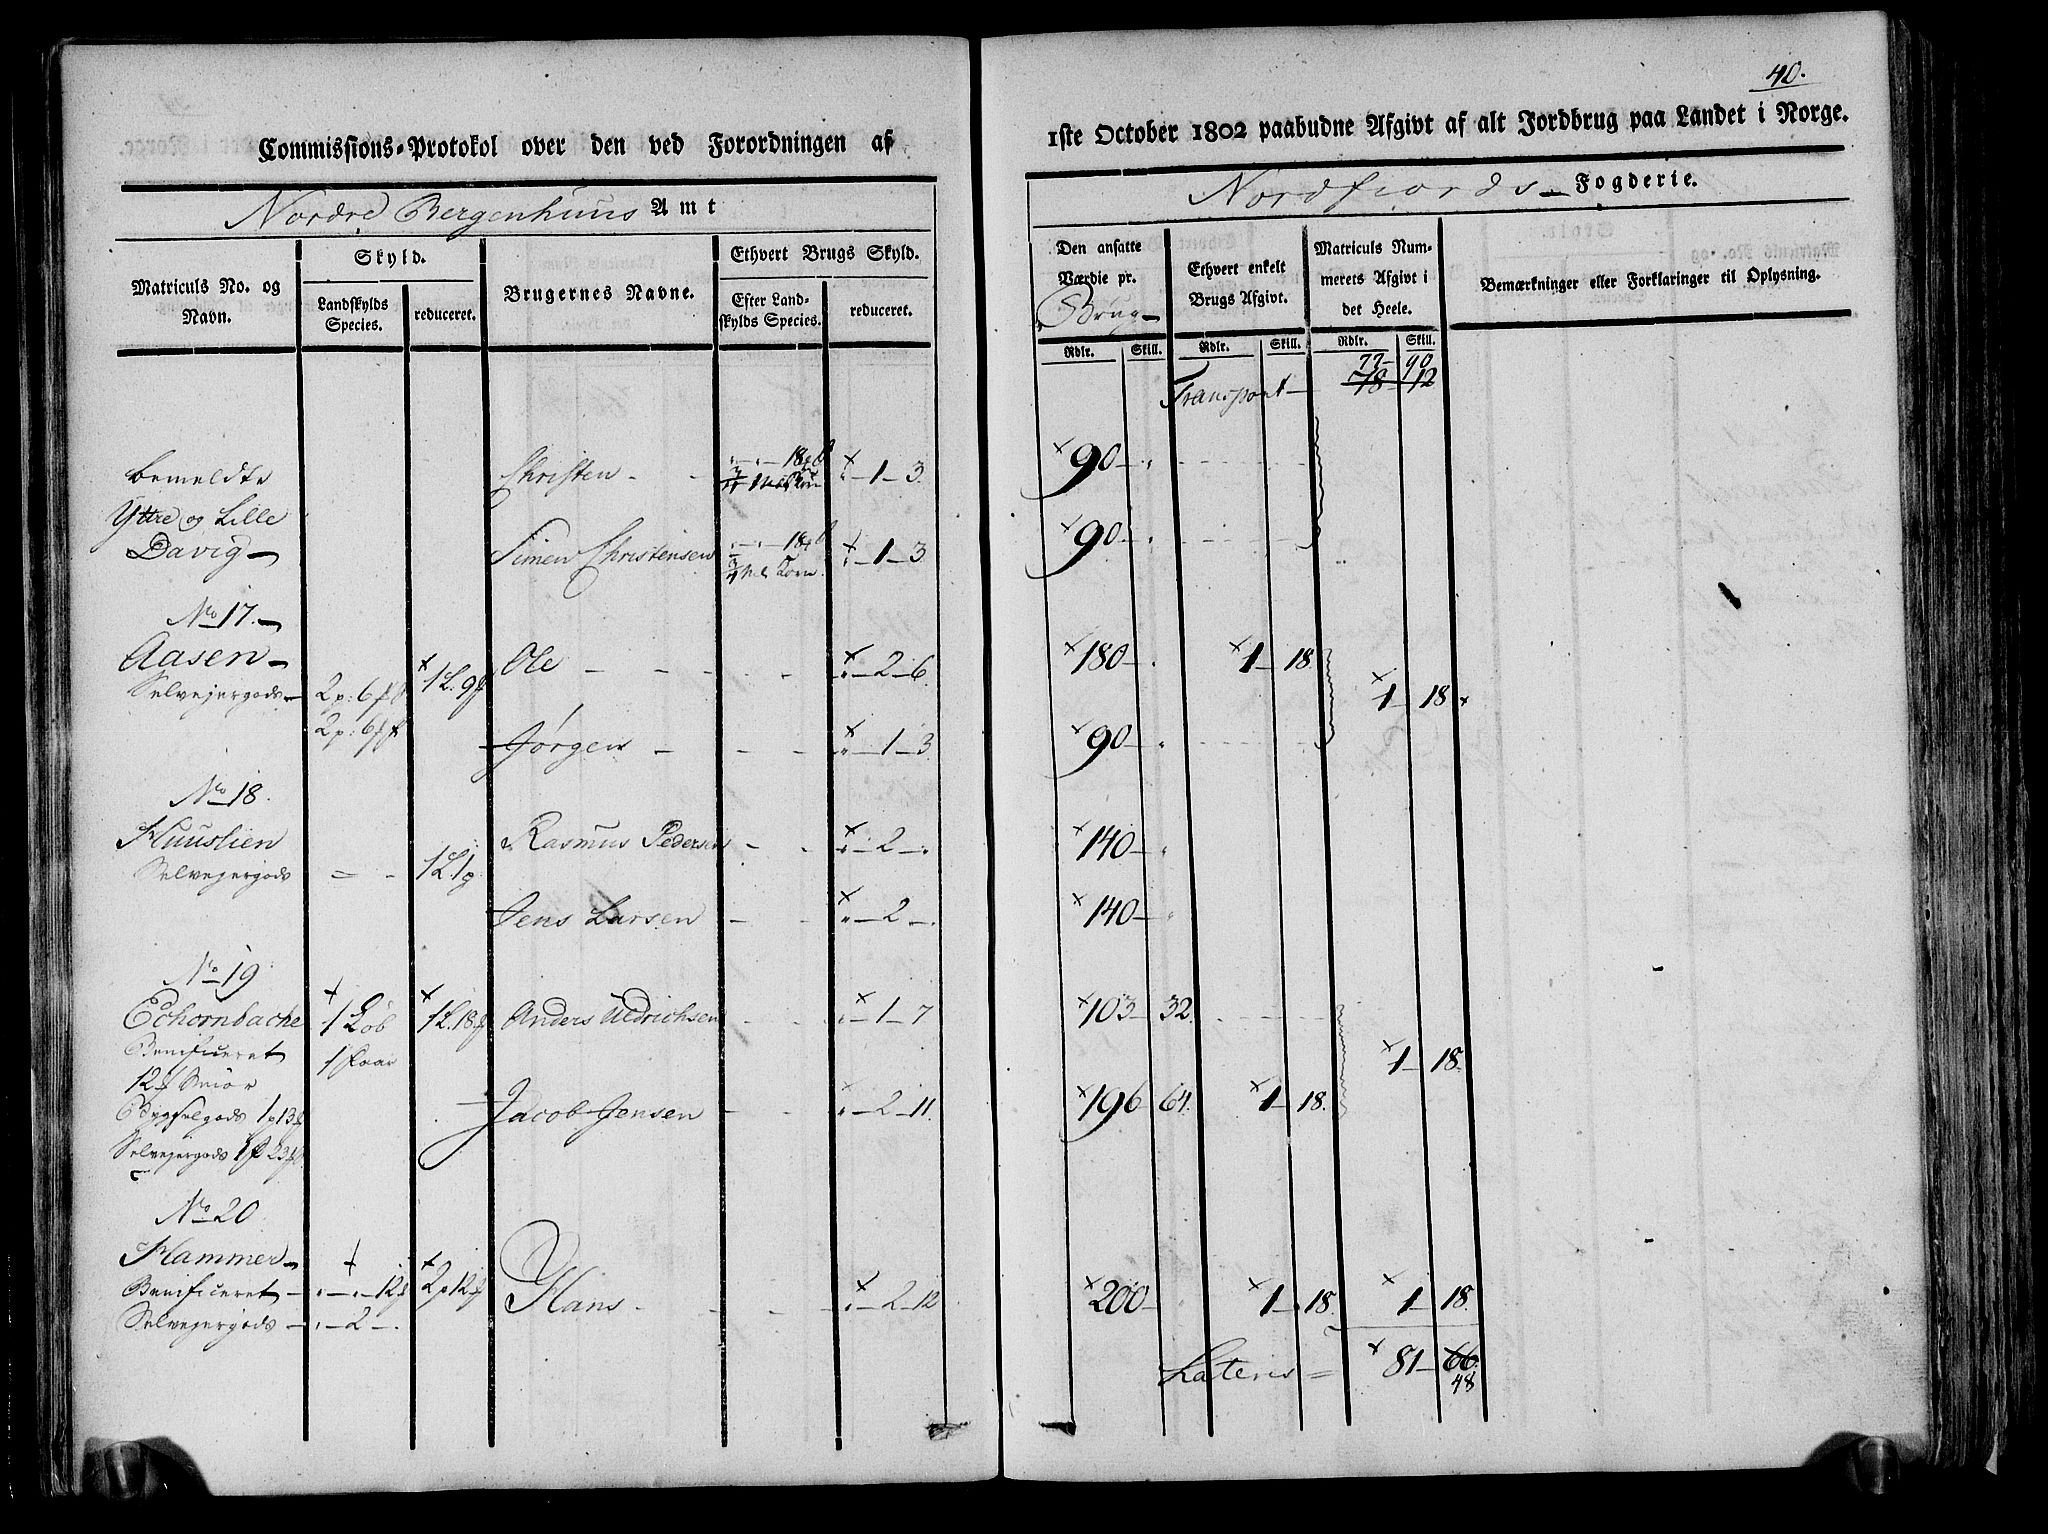 40.
Commissions-Protokol over den ved Forordningen af
1ste October 1802 paabudne Afgivt af alt Jordbrug paa Landet i Norge.
Nordre Bergenhuus Amt
Nordfiords- Fogderie.
Matriculs No. og Navn.
Skyld.
Landskylds Species.
reduceret.
Brugernes Navne.
Ethvert Brugs Skyld.
Efter Landskylds Species.
reduceret.
Den ansatte Værdie pr. Brug
Ethvert enkelt Brugs Afgivt.
Matriculs Nummerets Afgivt i det Heele.
Bemærkninger eller Forklaringer til Oplysning.
Rdlr. Skill. Rdlr. Skill. Rdlr. Skill.
77- 90
Transport- 78- 12
bemeldte Christen - - 1-3. 90-
Yttre og Lille
Davig- Simen Christensen - 1-3 90-
No 17.-
Aasen- 1L. 9 Ole - - - - 2-6. 180- 1-18
Selvejergods- 2p: 6 1-18
2p: 6
Jørgen - - - - 1-3 90-
No 18.
Huuslien Rasmus Pedersen - - 2- 140-
Selvejergods = - 1L. 1
Jens Larsen - - - 2- 140-
No 19
Echornbache 1 Løb 1L. 18 Anders Uldrichsen - - 1-7 103-32.
Benificeret 1 Faar 1-18.
12 Smör
Bygselgods 1p 13 Jacob Jensen - - 2-11. 196-64. 1-18.
Selvejergods 1p 23
No 20
Hammer-
Benificeret - 12 2p 12 Hans - - - - 2-12 200- 1-18 1-18.
Selvejergods - 2-
Lateris = 81-66.
48